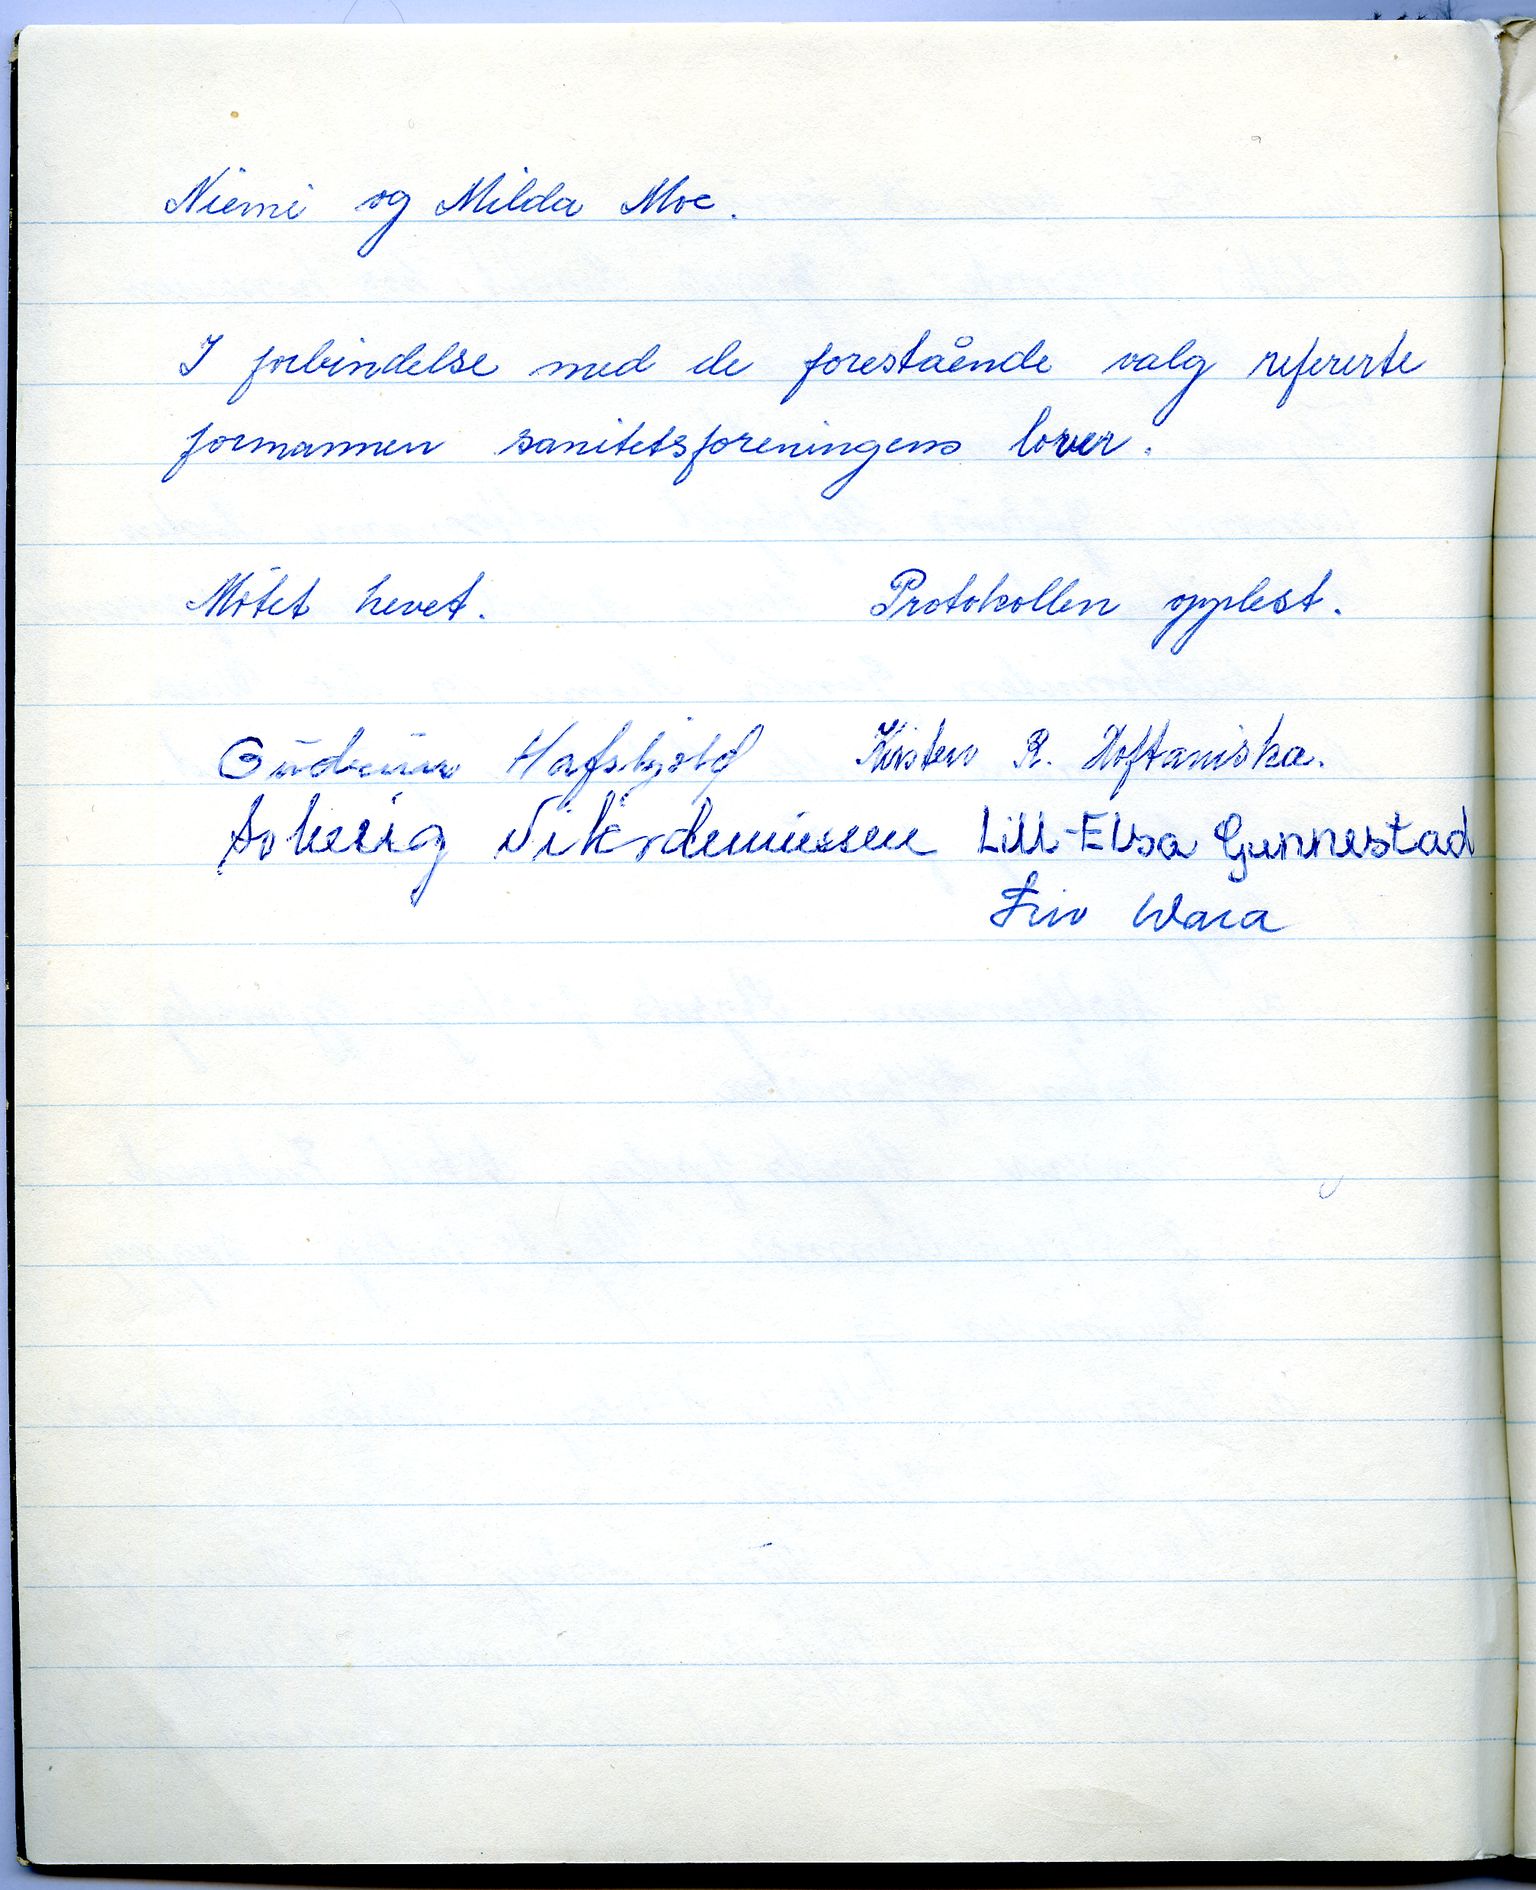 Niemi og Milda Moe.
I forbindelse med de forestående valg refererte
formannen sanitetsforeningens lover.
Møtet hevet. Protokollen opplest.
Gudrun Hafskjold Kirsten R. Hoftaniska.
Solveig Nikodemussen Lill-Elsa Gunnestad
Liv Wara